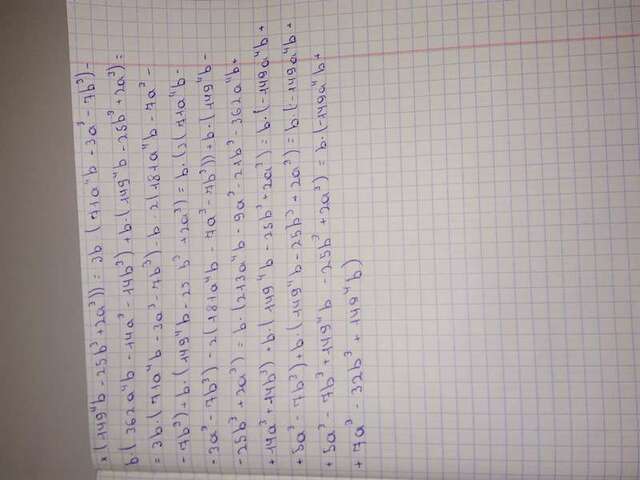 × (149⁴b - 25b³ + 2a³)) = 3b · (71a⁴b - 3a³ - 7b³) -
b · (362a⁴b - 14a³ - 14b³) + b · (149⁴b - 25b³ + 2a³) =
= 3b · (71a⁴b - 3a³ - 7b³) - b · 2(181a⁴b - 7a³ -
- 7b³) + b · (149⁴b - 25b³ + 2a³) = b · (3(71a⁴b -
- 3a³ - 7b³) - 2(181a⁴b - 7a³ - 7b³)) + b · (149⁴b -
- 25b³ + 2a³) = b · (213a⁴b - 9a³ - 21b³ - 362a⁴b +
+ 14a³ + 14b³) + b · (149⁴b - 25b³ + 2a³) = b · (-149a⁴b +
+ 5a³ - 7b³) + b · (149⁴b - 25b³ + 2a³) = b · (-149a⁴b +
+ 5a³ - 7b³ + 149⁴b - 25b³ + 2a³) = b · (-149a⁴b +
+ 7a³ - 32b³ + 149⁴b)